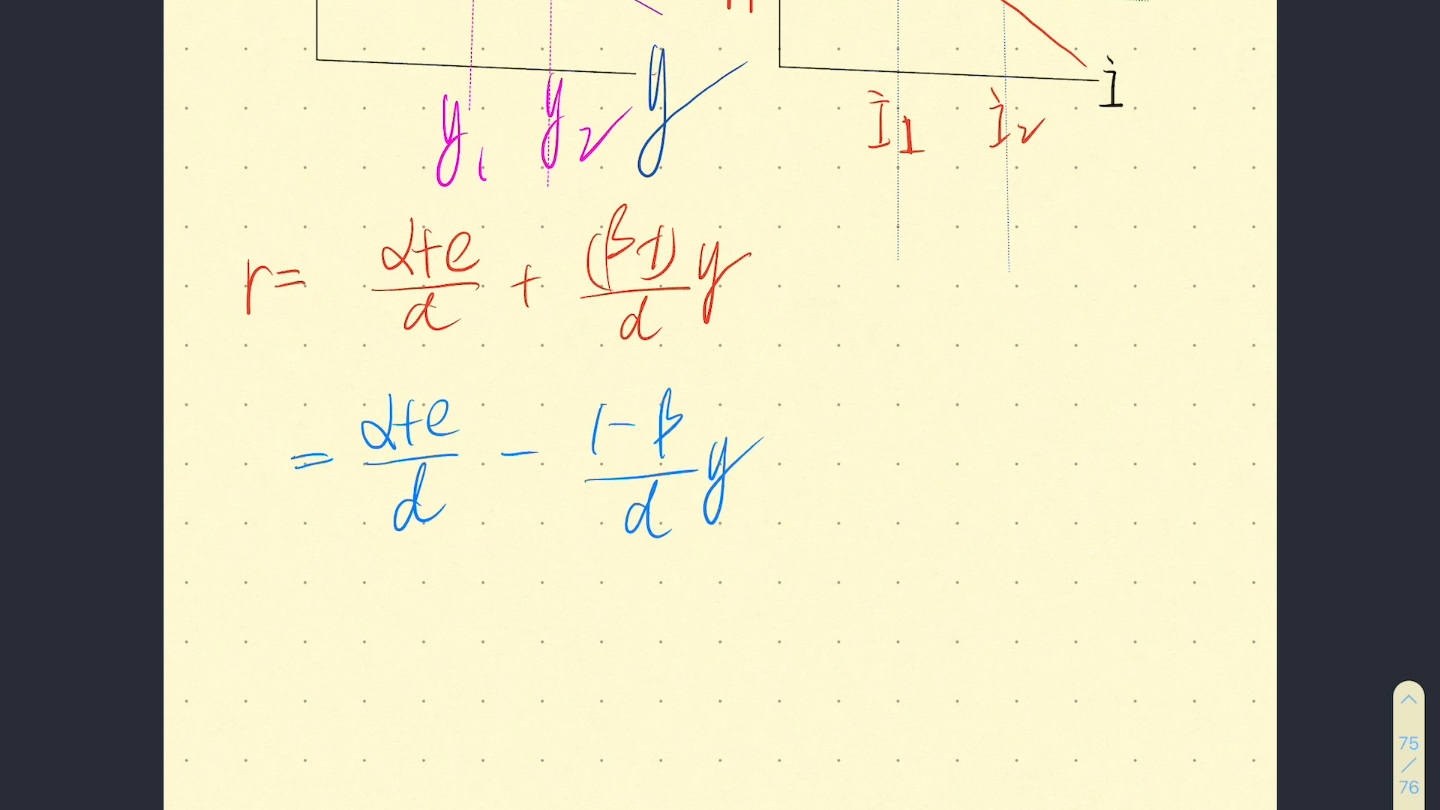 y
i
y₁ y₂
i₁ i₂
r = (α+e)/d + (β-1)/d y
= (α+e)/d - (1-β)/d y
75
/
76